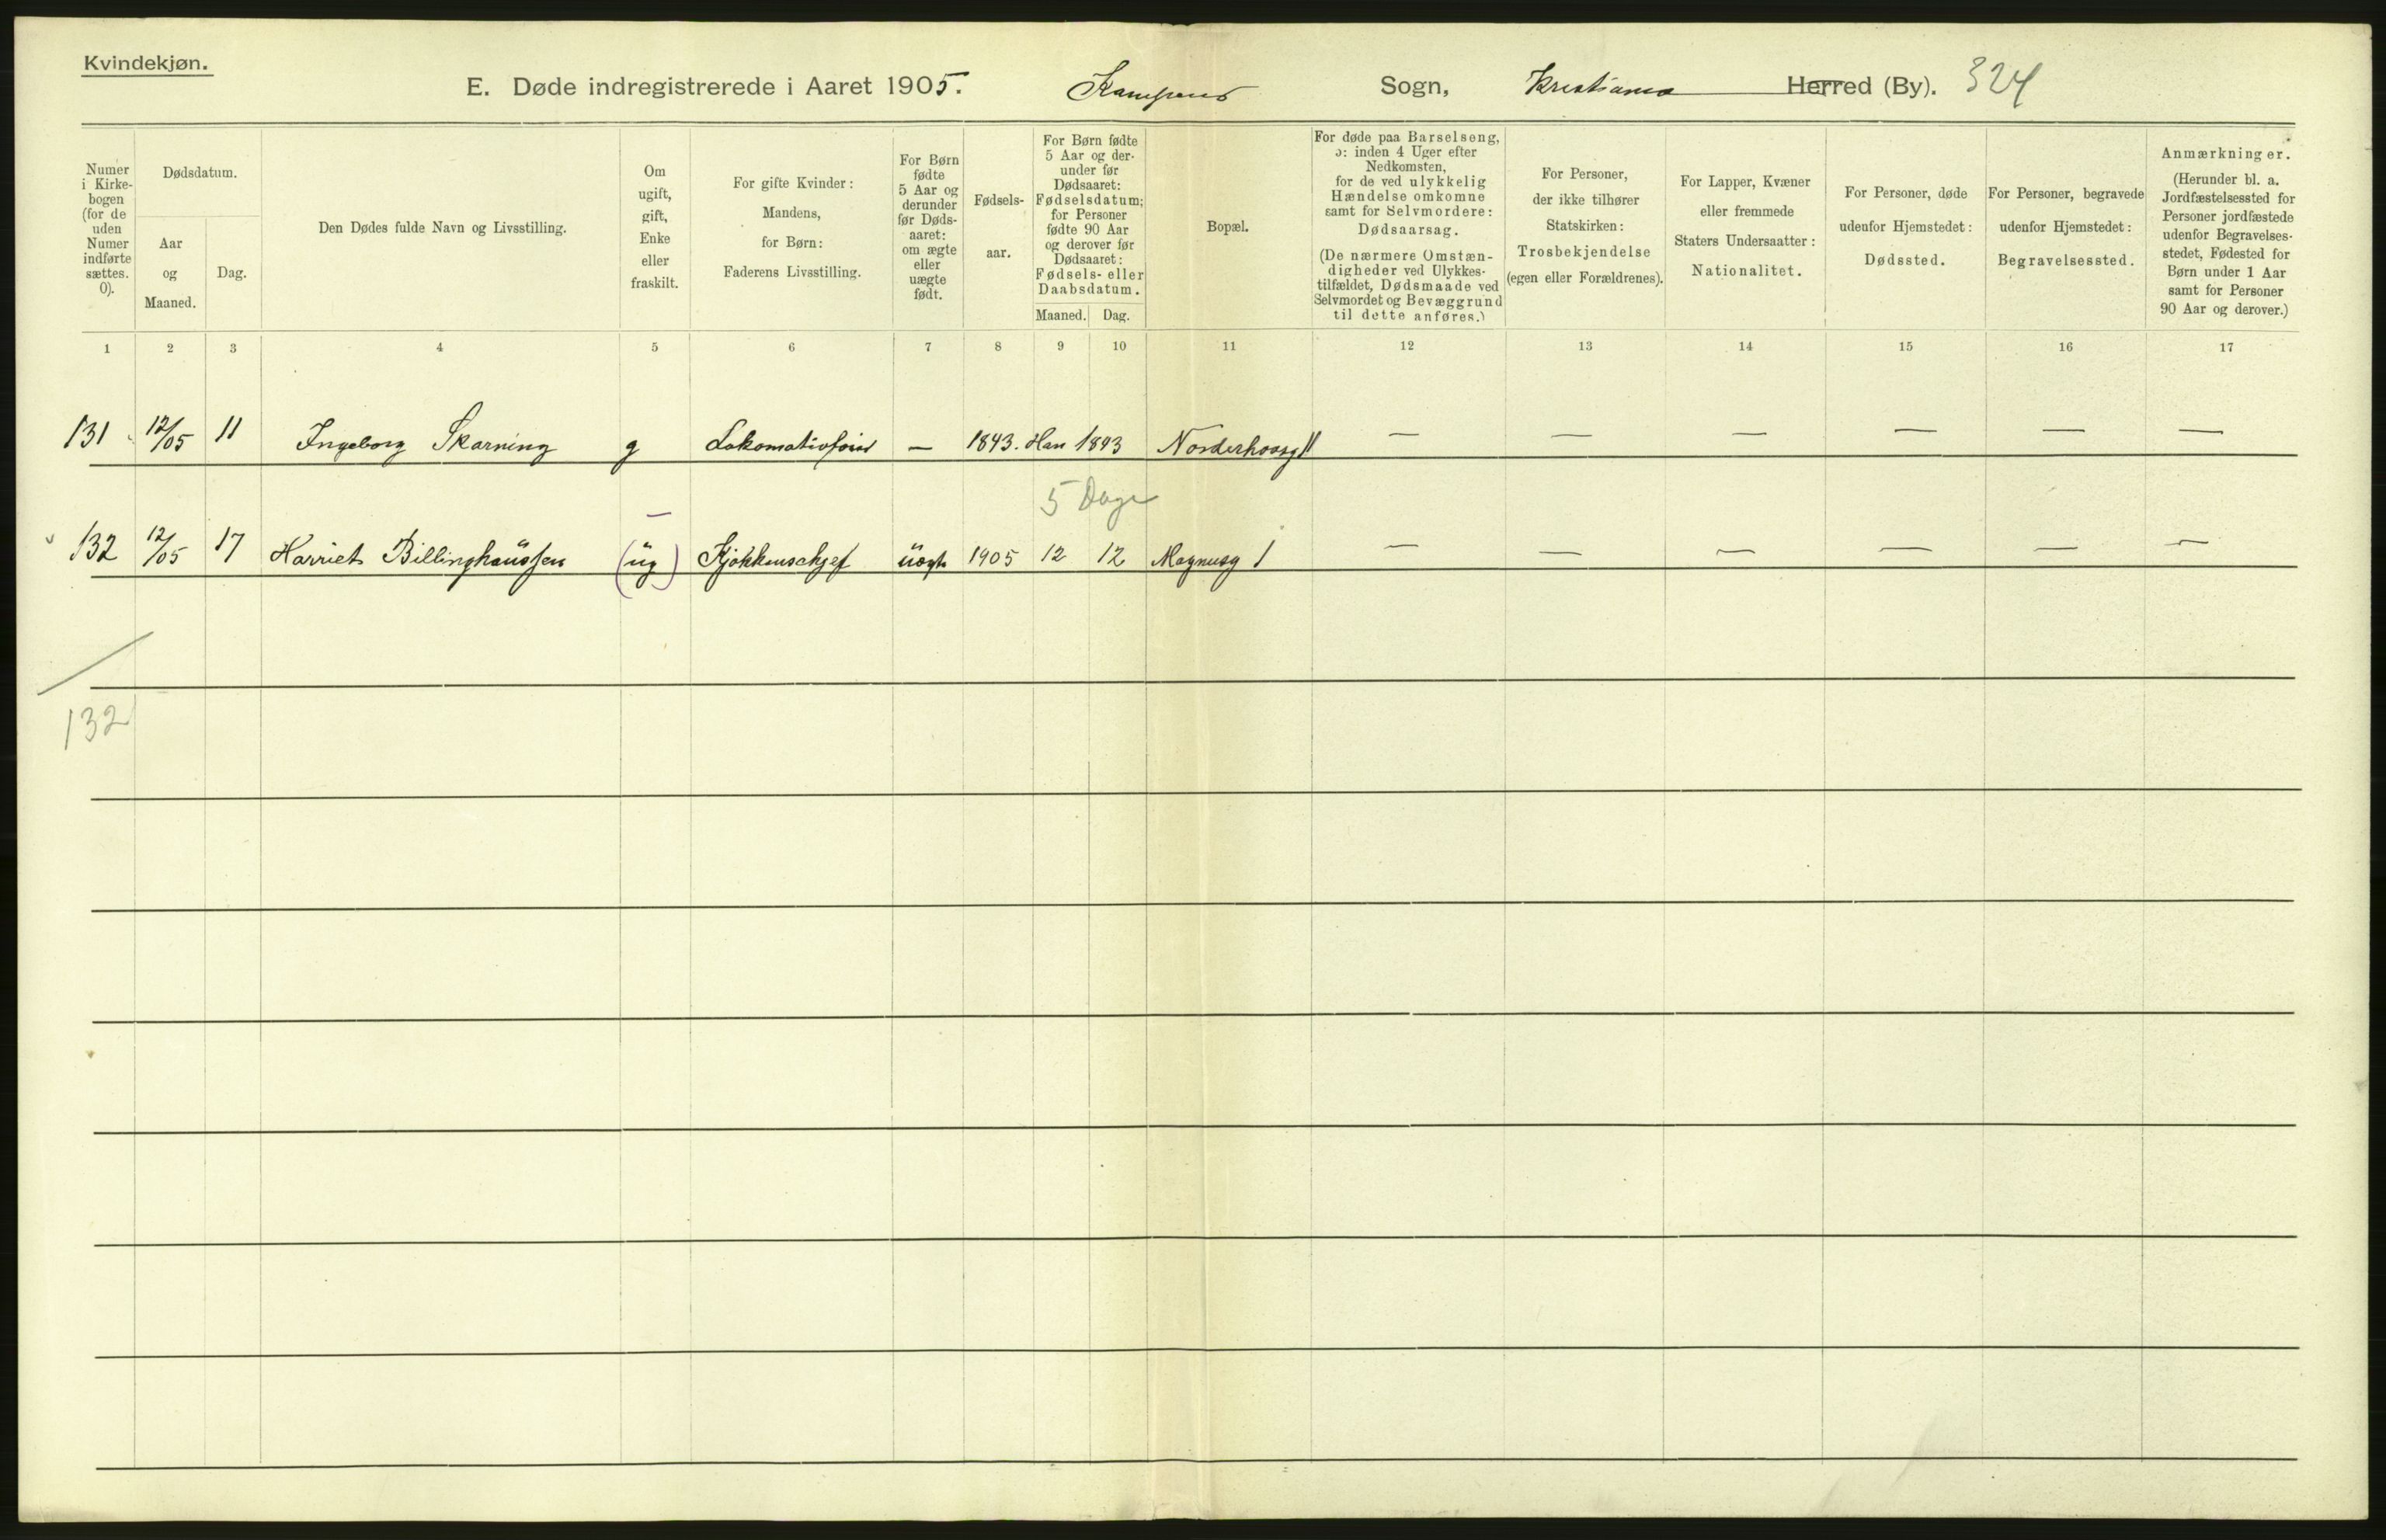 Kvindekjøn.
E. Døde indregistrerede i Aaret 1905. Kampens Sogn, Kristiania Herred (By). 324
Numer i Kirke-bogen (for de uden Numer indførte sættes. 0).
Dødsdatum.
Aar og Maaned.
Dag.
Den Dødes fulde Navn og Livsstilling.
Om ugift, gift, Enke eller fraskilt.
For gifte Kvinder: Mandens, for Børn: Faderens Livsstilling.
For Børn fødte 5 Aar og derunder før Døds-aaret: om ægte eller uægte født.
Fødsels-aar.
For Børn fødte 5 Aar og der-under før Dødsaaret: Fødselsdatum; for Personer fødte 90 Aar og derover før Dødsaaret: Fødsels- eller Daabsdatum.
Maaned. Dag.
Bopæl.
For døde paa Barselseng, ɔ: inden 4 Uger efter Nedkomsten, for de ved ulykkelig Hændelse omkomne samt for Selvmordere: Dødsaarsag.
(De nærmere Omstæn-digheder ved Ulykkes-tilfældet, Dødsmaade ved Selvmordet og Bevæggrund til dette anføres.)
For Personer, der ikke tilhører Statskirken: Trosbekjendelse (egen eller Forældrenes).
For Lapper, Kvæner eller fremmede Staters Undersaatter: Nationalitet.
For Personer, døde udenfor Hjemstedet: Dødssted.
For Personer, begravede udenfor Hjemstedet: Begravelsessted.
Anmærkninger. (Herunder bl. a. Jordfæstelsessted for Personer jordfæstede udenfor Begravelses-stedet, Fødested for Børn under 1 Aar samt for Personer 90 Aar og derover.)
1 2 3 4 5 6 7 8 9 10 11 12 13 14 15 16 17
131 12/05 11 Ingeborg Skarning g Lokomotivfører — 1843. 1843 Norderhovsg 11 — — — — — —
5 Dage
132 12/05 17 Harriet Billinghaussen (ug) Kjøkkenschef uægte 1905 12 12 Magnusg 1 — — — — — —
132